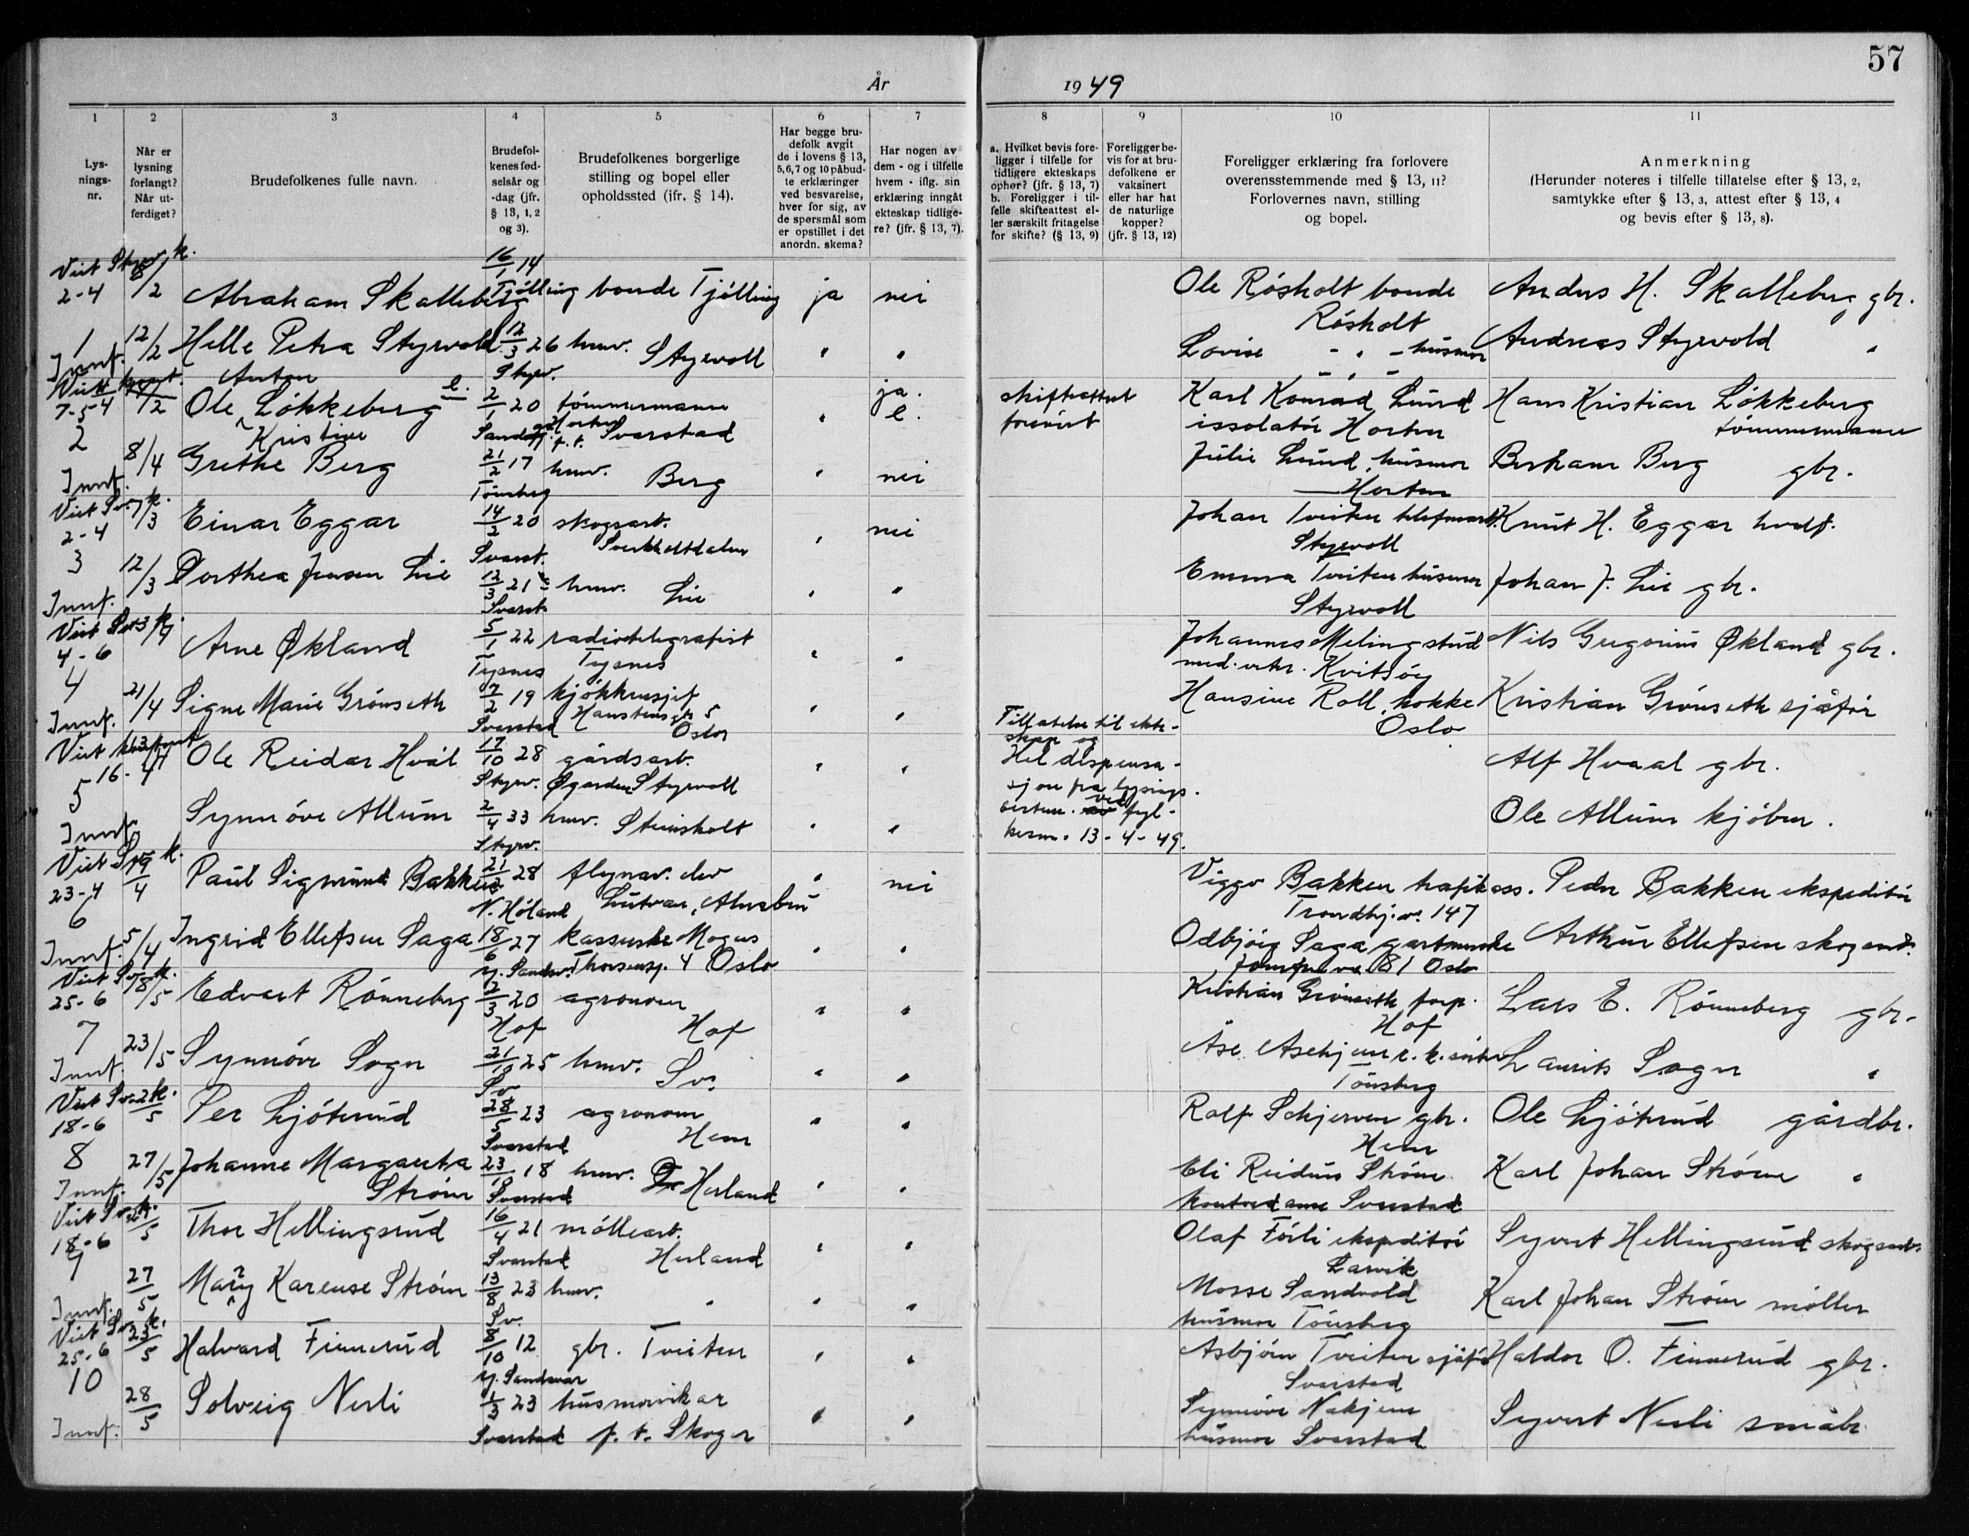 57
År 1949
1 2 3 4 5 6 7 8 9 10 11
Lys-
nings-
nr.
Når er
lysning
forlangt?
Når ut-
ferdiget?
Brudefolkenes fulle navn.
Brudefol-
kenes fød-
selsår og
-dag (jfr.
§ 13, 1, 2
og 3).
Brudefolkenes borgerlige
stilling og bopel eller
opholdssted (jfr. § 14).
Har begge bru-
defolk avgit
de i lovens § 13,
5,6,7 og 10 påbud-
te erklæringer
ved besvarelse,
hver for sig, av
de spørsmål som
er opstillet i det
anordn. skema?
Har nogen av
dem - og i tilfelle
hvem - iflg. sin
erklæring inngåt
ekteskap tidlige-
re? (jfr. § 13, 7).
a. Hvilket bevis fore-
ligger i tilfelle for
tidligere ekteskaps
ophør? (jfr. § 13, 7)
b. Foreligger i til-
felle skifteattest el-
ler særskilt fritagelse
for skifte? (§ 13, 9)
Foreligger be-
vis for at bru-
defolkene er
vaksinert
eller har hat
de naturlige
kopper?
(jfr. § 13, 12)
Foreligger erklæring fra forlovere
overensstemmende med § 13, 11?
Forlovernes navn, stilling
og bopel.
Anmerkning
(Herunder noteres i tilfelle tillatelse efter § 13, 2,
samtykke efter § 13, 3, attest efter § 13, 4
og bevis efter § 13, 8).
Viet Styrv. k. 8/2 16/1 14
2-4 Abraham Skalleberg Tjølling bonde Tjølling ja nei Ole Røsholt bonde Anders H. Skalleberg gbr.
Røsholt
1 12/2 Helle Petra Styrvold 12/3 26 hmv. Styrvoll " " Lovise - " - husmor Andreas Styrvold "
Innf. Styrv.
Viet
7-5 Ole Anton Løkkeberg e. 2/1 20 tømmermann Horten " ja. e. skifteattest Karl Konrad Lund Hans Kristian Løkkeberg
p.t. Svarstad issolatør Horten tømmermann
2 8/4 Grethe Kristine Berg 21/2 17 hmv. Berg " nei Julie Lund, husmor Berg gbr.
Innf. Tønsberg Horten
Viet Sv. k. 7/3 Einar Eggar 14/2 20 skogsarb. " nei Johan Tveiten Knut H. Eggar
2-4 Svarst. Styrvoll
3 12/3 Dorthea Jensen Lie 12/3 21 hmv. Lie " " Emma Tveiten husmor Johan J. Lie gbr.
Innf. Svarst. Styrvoll
Viet
4-6 Arne Økland 5/1 22 radiotelegrafist " " Johannes Meling stud Nils Gregorius Økland gbr.
Tysnes Tysnes med. Kvitsøy
4 21/4 Signe Marie Grønseth 7/2 19 kjøkkensjef " " Hansine Roll, kokke Kristian Grønseth sjåfør
Innf. Svarstad Hansteensgt. 5 Oslo Oslo
Viet
16-4 Ole Reidar Hvål 17/10 28 gårdsarb. " " Tillatelse til ekte-
skap og Alf Hvaal gbr.
5 Styrv. Øgarden Styrvoll Hel dispensa-
sjon fra lysnings-
Synnøve Allum 2/4 33 hmv. Steinsholt " " ved fyl- Ole Allum kjøbm.
Innf. Styrv. 13-4-49.
Viet Sv. k. 19/4 Paul Sigmund Bakken 28 flynav. elev " nei Viggo Bakken trafikass. Peder Bakken ekspeditør
23-4 N. Høland Trondhj.v. 147
6 5/4 Ingrid Ellefsen Saga 18/6 27 " " Odbjørg Saga Arthur Ellefsen skogsarb.
Innf. Y. Sandsv. 4 Oslo 81 Oslo
Viet Sv. k. 18/5 Edvart Rønneberg 12/3 20 agronom " " Kristian Grønseth forp. Lars E. Rønneberg gbr.
25-6 Hof Hof Hof
7 23/5 Synnøve Sogn 25 hmv. Sv. " " Åse Lauritz Sogn "
Innf. Sv. Tønsberg
Viet Sv. k. Per Ljøterud 28/5 23 agronom " " Rolf Schjerven gbr. Ole Ljøterud gårdbr.
18-6 Svarstad Hem Hem
8 27/5 Johanne Margareta Strøm 23/10 18 hmv. Herland " " Eli Reidun Strøm Karl Johan Strøm "
Innf. Svarstad Svarstad
Viet Sv. k. Thor Hellingsrud 16/4 21 mølleart. " " Olaf Förli ekspeditør Syvert Hellingsrud skogsarb.
18-6 Svarstad Herland Larvik
9 27/5 Mary Karense Strøm 13/8 23 hmv. " " " Mosse Sandvold Karl Johan Strøm møller
Innf. Sv. husmor Tønsberg
Viet Sv. k. 23/5 Halvard Finnerud 8/10 12 gbr. Tveiten " " Asbjørn Tveiten sjåfør Haldor O. Finnerud gbr.
25-6 Y. Sandsvær Svarstad
10 28/5 Solveig Nerli 1/3 23 husmorvikar " " Synnøve Syvert Nerli småbr.
Innf. Svarstad p.t. Skoger husmor Svarstad